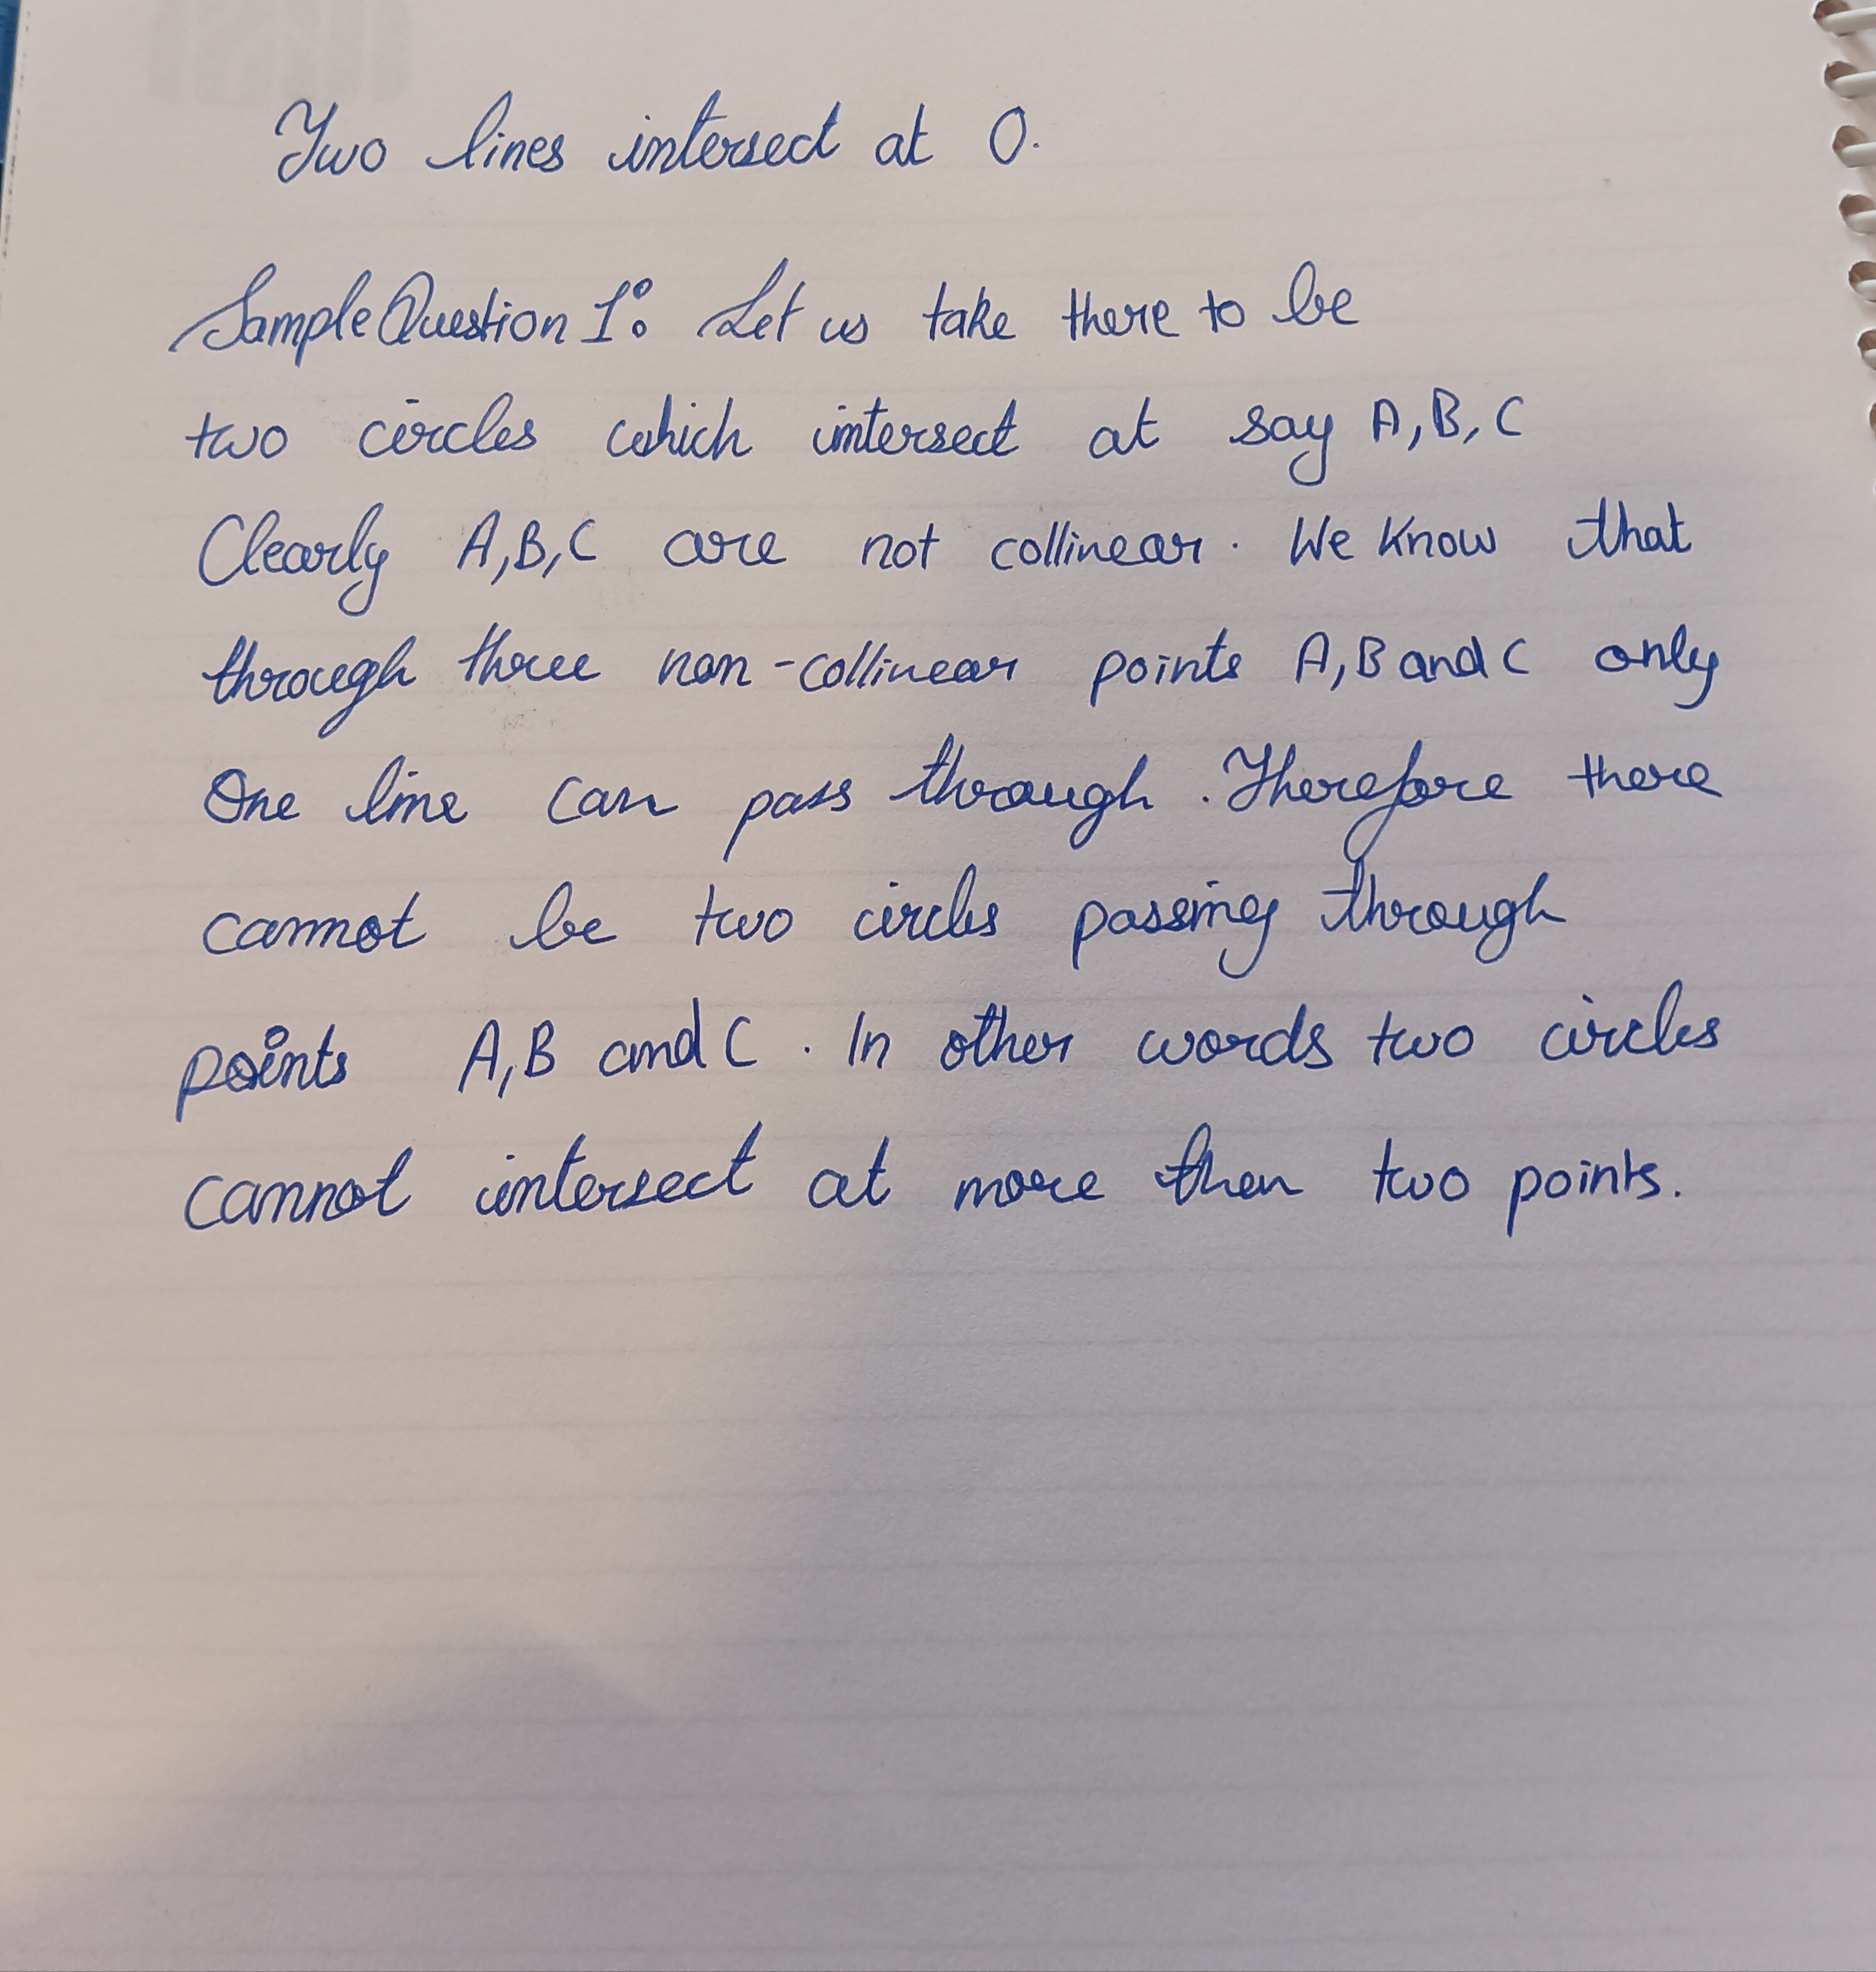 Two lines intersect at O.
Sample Question 1: Let us take there to be
two circles which intersect at say A, B, C
Clearly A, B, C are not collinear. We Know that
through three non-collinear points A, B and C only
One line can pass through. Therefore there
cannot be two circles passing through
points A, B and C. In other words two circles
cannot intersect at more then two points.